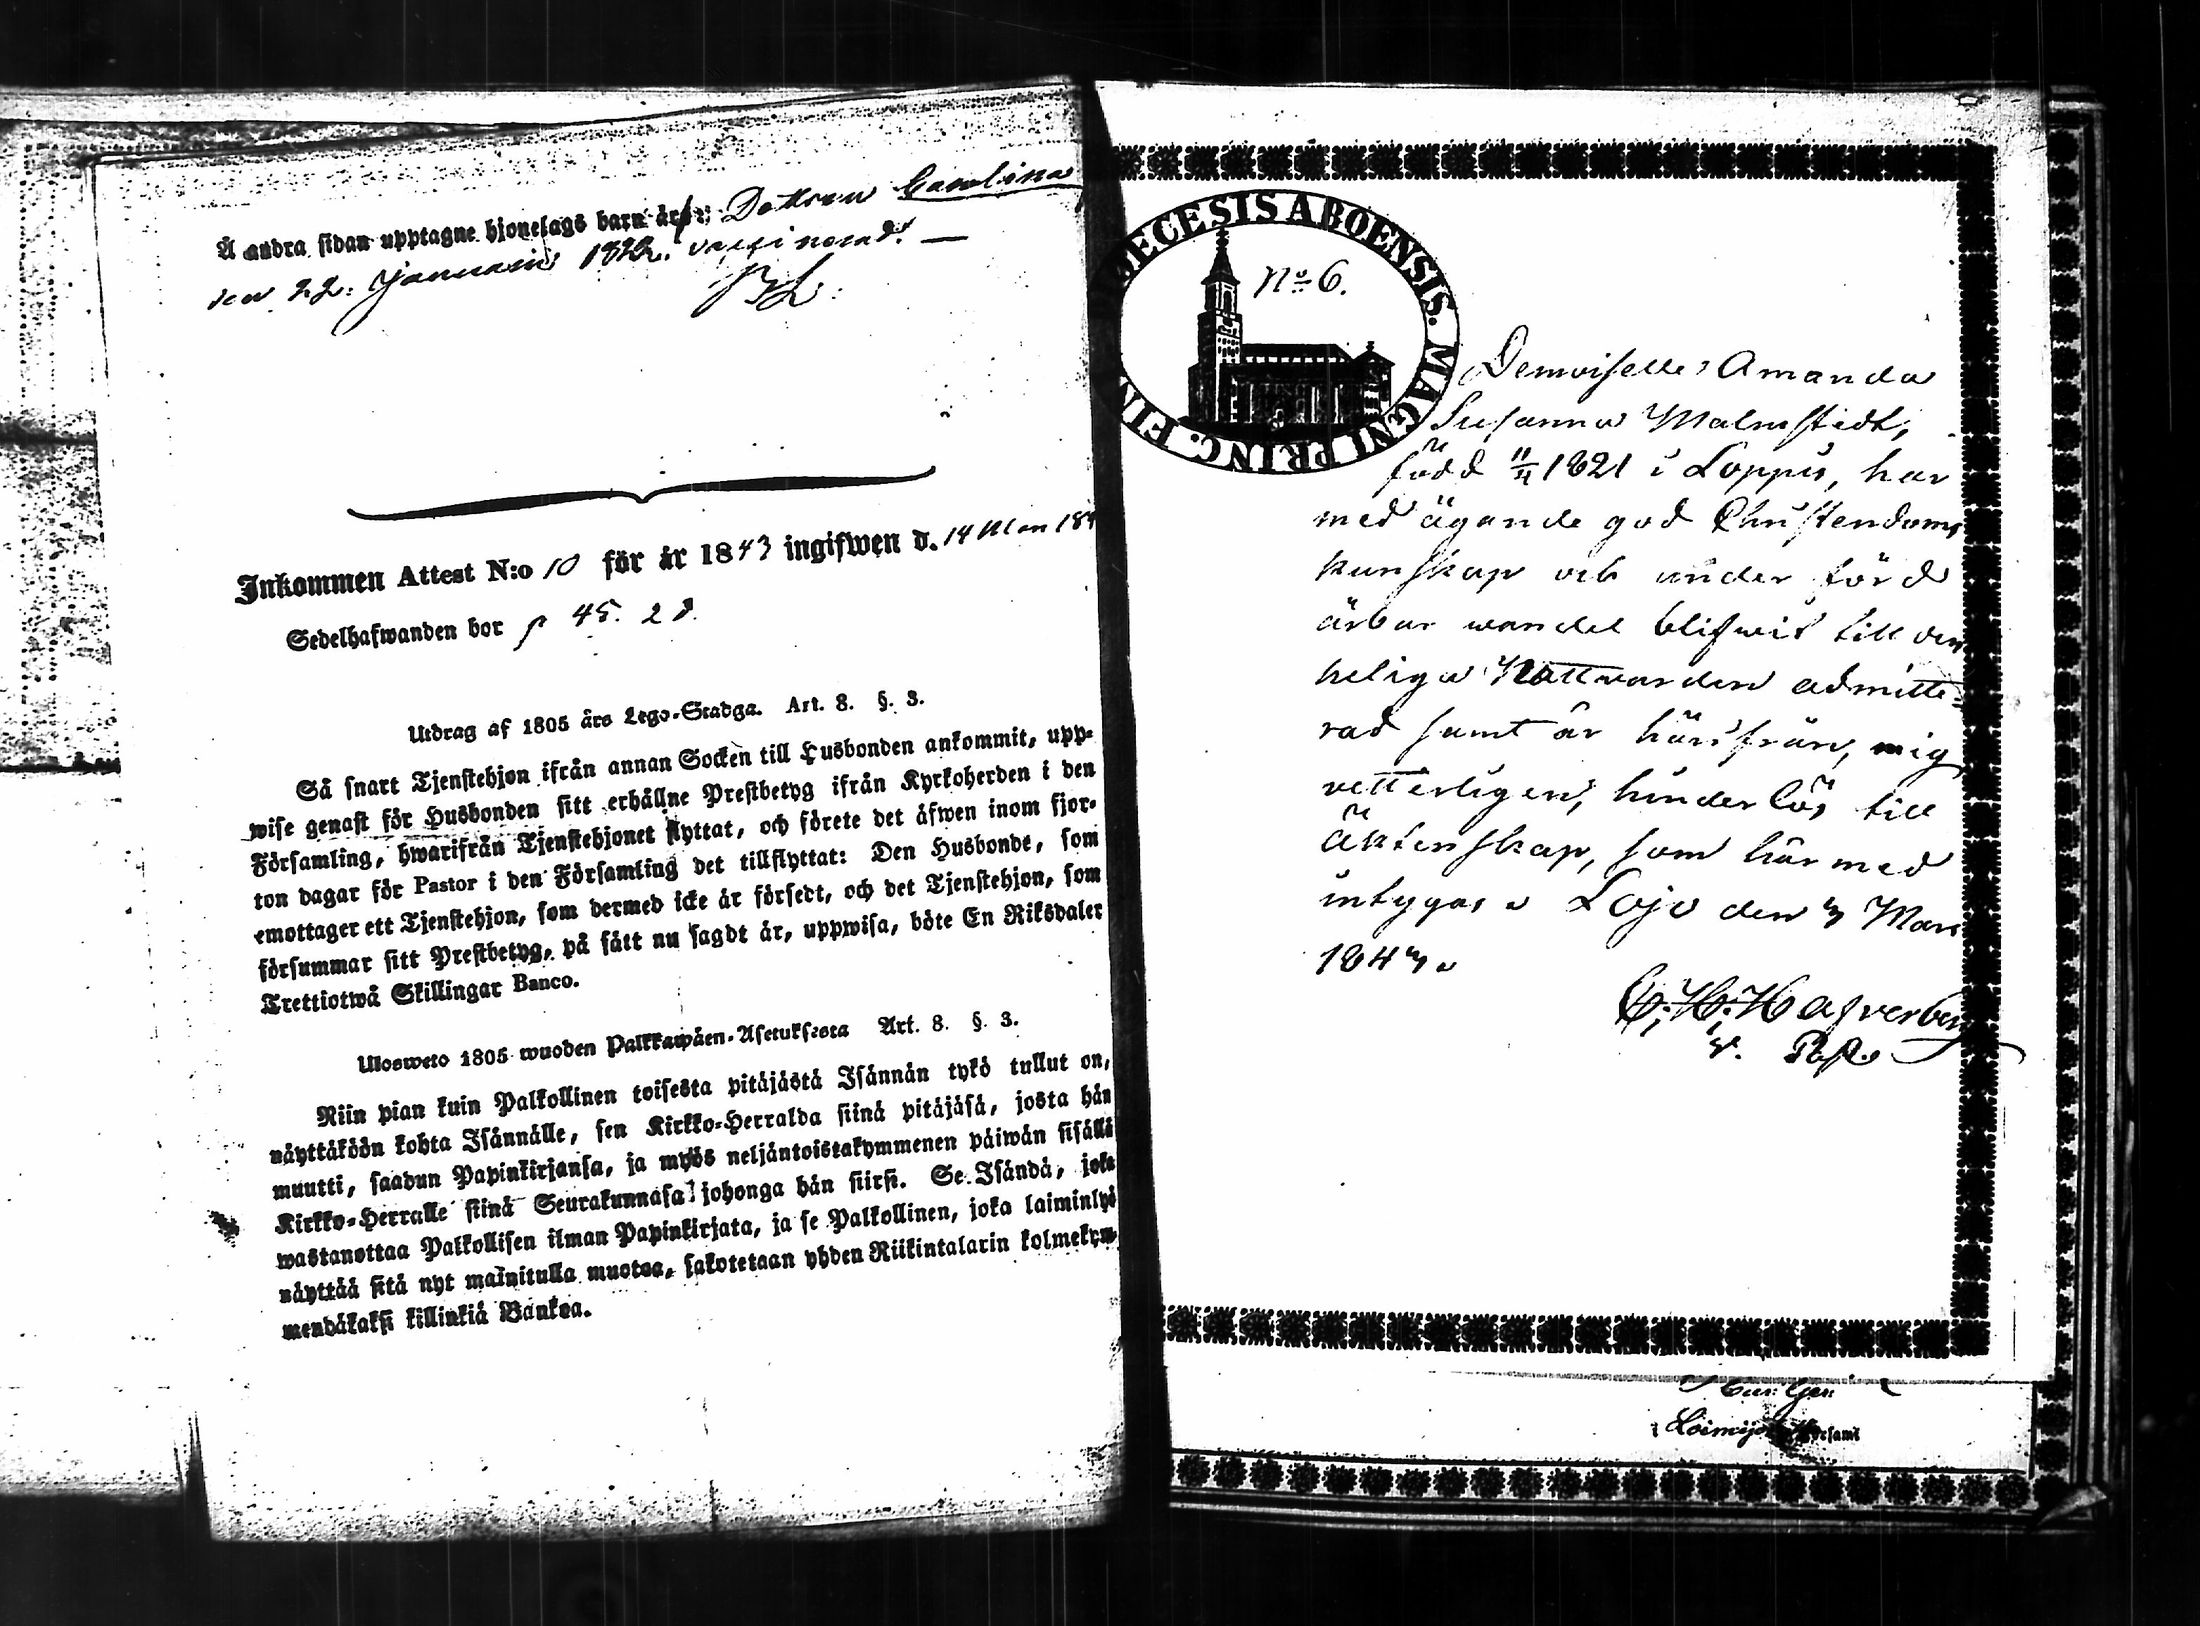 Å andra sidan upptagne hjonelags barn är: Dottren Carolina
den 22: Januarii 1822. vaccinerad. —
Inkommen Attest N:o 10 för år 1843 ingifwen d. 14 Mars 184
Sedelhafwanden bor p 45. 2 d.
Utdrag af 1805 års Lego-Stadga. Art. 8. §. 3.
Så snart Tjenstehjon ifrån annan Socken till Husbonden ankommit, upp-
wise genast för Husbonden sitt erhållne Prestbetyg ifrån Kyrkoherden i den
Församling, hwarifrån Tjenstehjonet flyttat, och förete det äfwen inom fjor-
ton dagar för Pastor i den Församling det tillflyttat: Den Husbonde, som
emottager ett Tjenstehjon, som dermed icke är försedt, och det Tjenstehjon, som
försummar sitt Prestbetyg, på sätt nu sagdt är, uppwisa, böte En Riksdaler
Trettiotwå Skillingar Banco.
Ulosweto 1805 wuoden Palkkawäen-Asetuksesta Art. 8. §. 3.
Niin pian kuin Palkollinen toisesta pitäjästä Isännän tykö tullut on,
näyttäköön kohta Isännälle, sen Kirkko-Herralda siinä pitäjäsä, josta hän
muutti, saadun Papinkirjansa, ja myös neljäntoistakymmenen päiwän sisällä
Kirkko-Herralle siinä Seurakunnasa johonga hän siirsi. Se Isändä, joka
wastanottaa Palkollisen ilman Papinkirjata, ja se Palkollinen, joka laiminlyö
näyttää sitä nyt mainitulla muotoa, sakotetaan yhden Riikintalarin kolmekym-
mendäkaksi killinkiä Bankoa.
DIOECESIS ABOENSIS. MAGNI PRINC. FIN
No 6.
Demoiselle Amanda
Susanna Malmstedt,
född 11/4 1821 i Loppis, har
med ägande god Christendoms
kunskap och under förd
ärbar wandel blifwit till den
heliga Nattvarden admitte-
rad samt är härifrån, mig
vetterligen, hinderlös till
äktenskap, som härmed
intygas. Lojo den 3 Mars
1843.
C. H. Hafverberg
v. Past.
i Loimijoki Församl